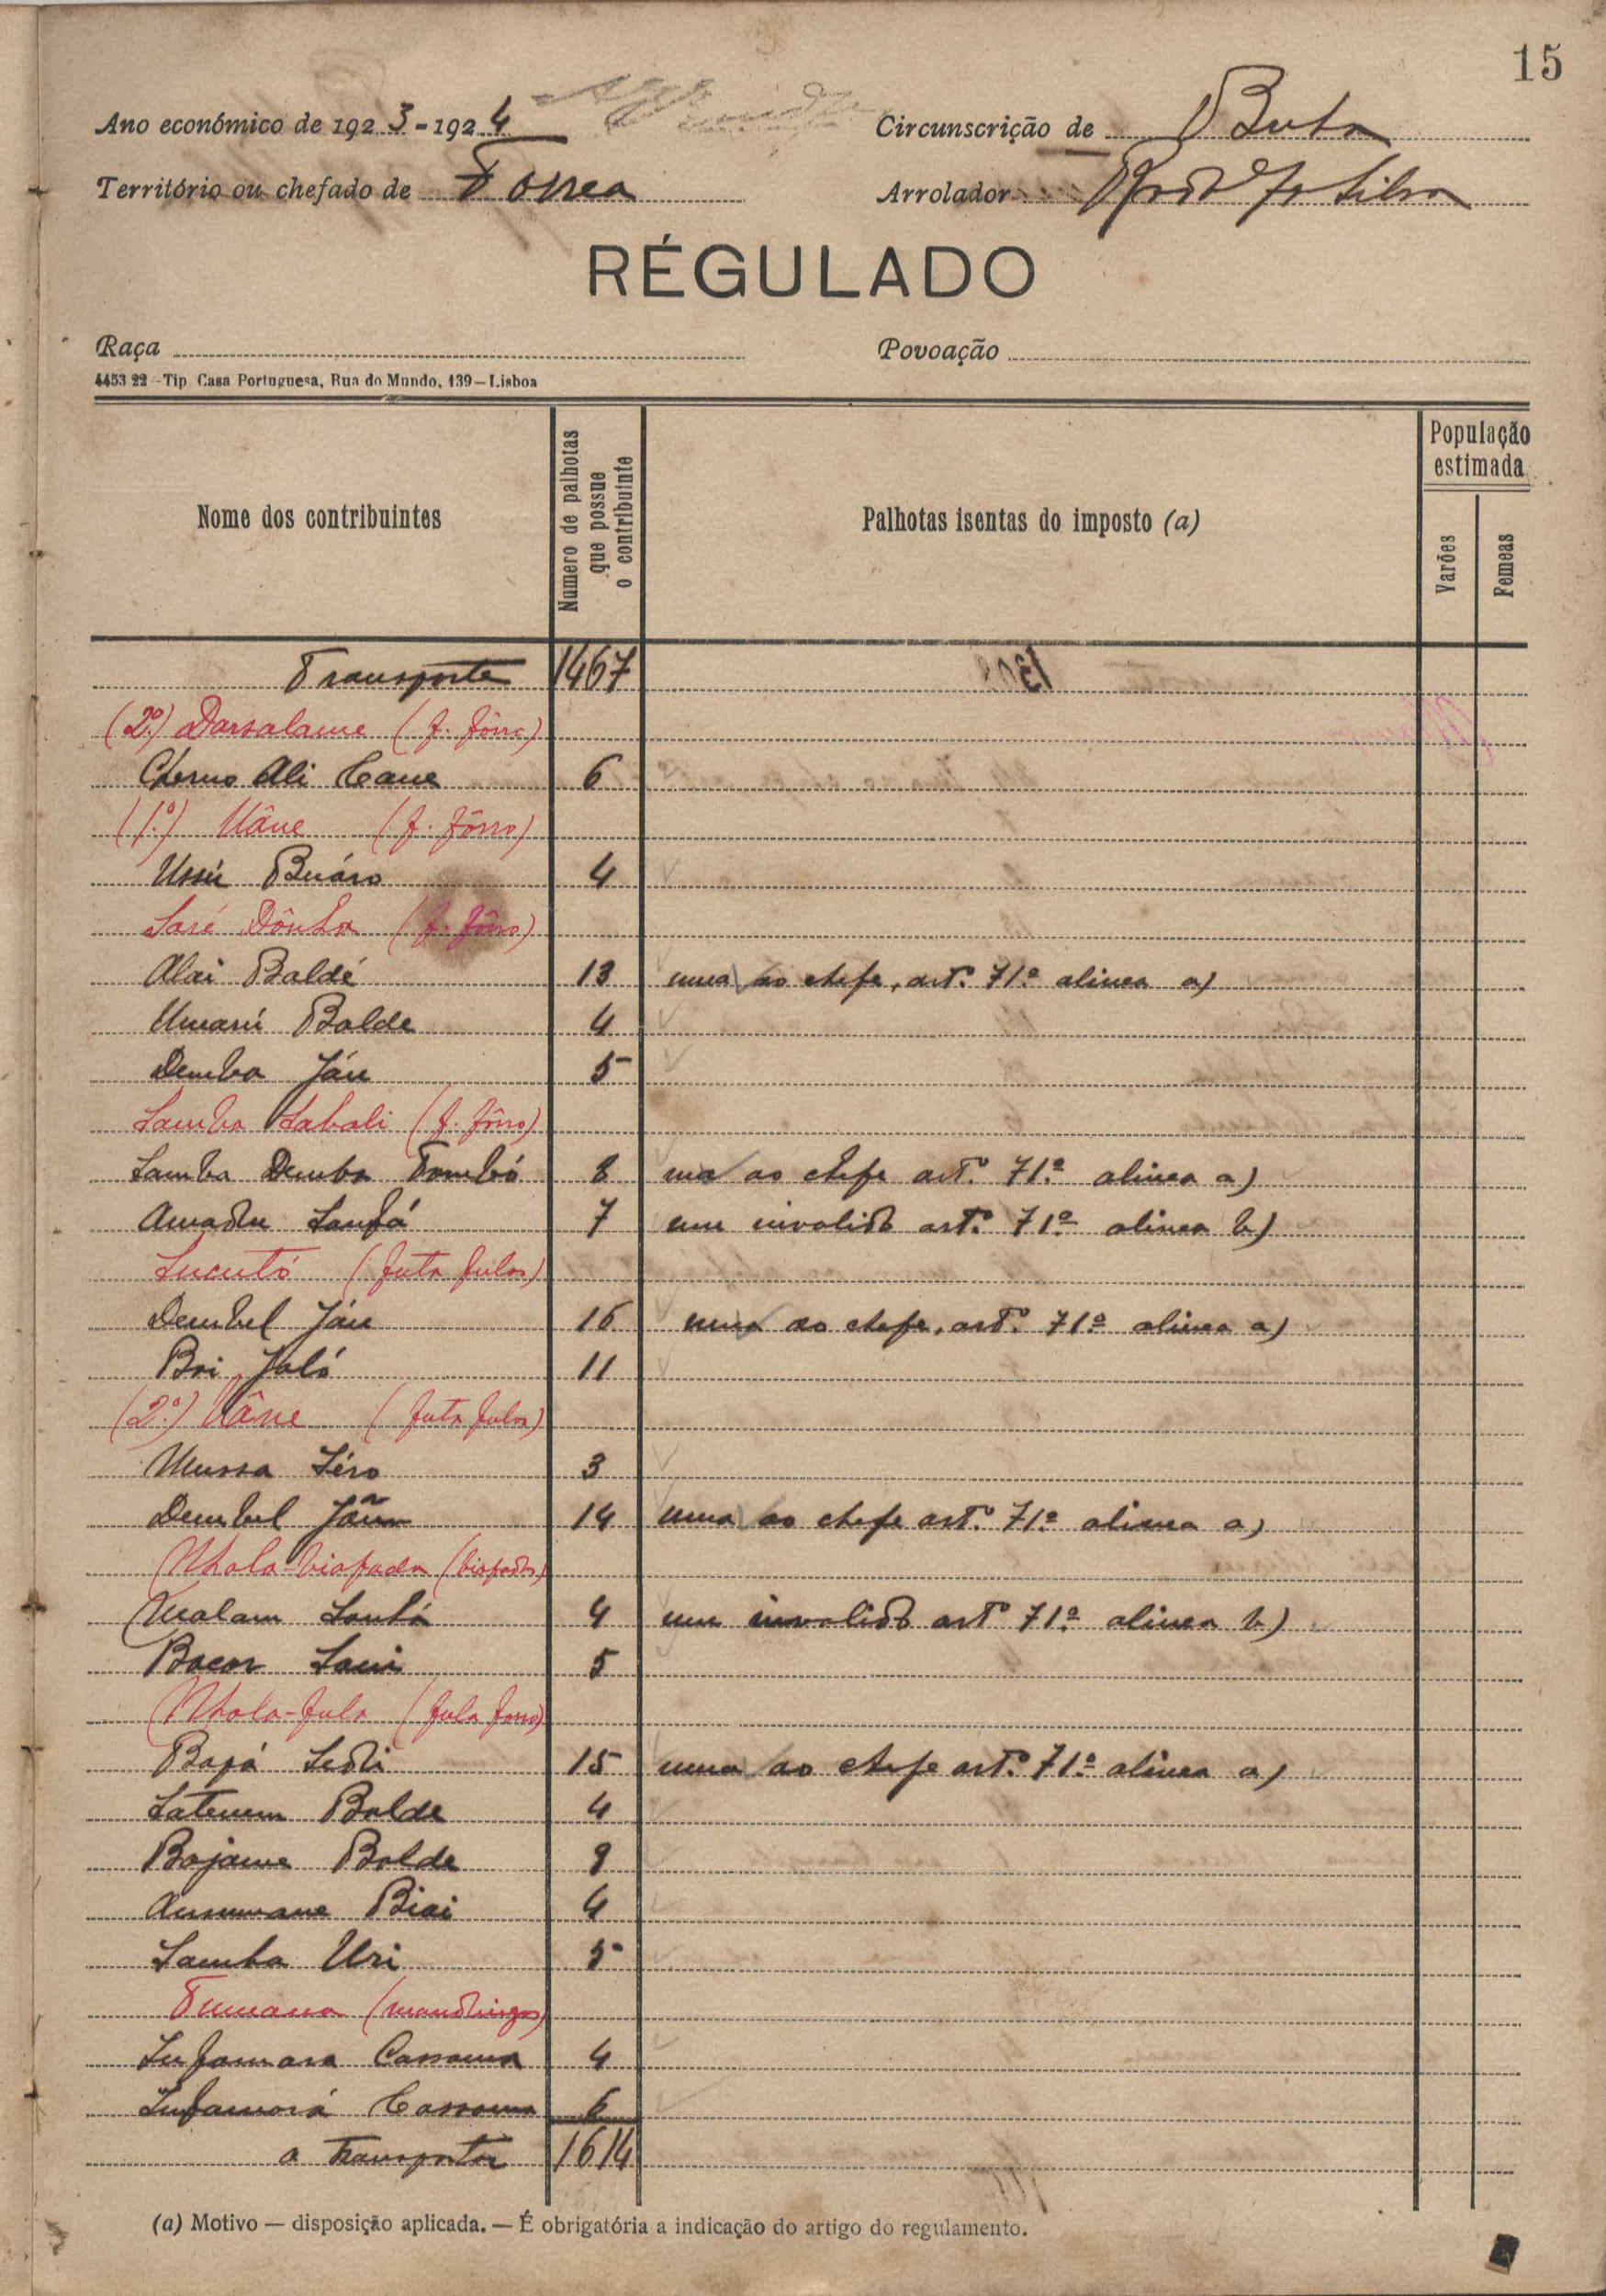 15
Ano económico de 1923-1924
Circunscrição de Buba
Território ou chefado de Forrea
Arrolador Silva
RÉGULADO
Raça
Povoação
4453 22 - Tip. Casa Portuguesa, Rua do Mundo, 139 — Lisboa
Nome dos contribuintes
Numero de palhotas que possue o contribuinte
Palhotas isentas do imposto (a)
População estimada
Varões
Femeas
Transporte 1467
(2.º) Darsalame (f. fôrro)
Cherno Ali Cane 6
(1.º) Uâne (f. fôrro)
Ussú Buáro 4
Saré Dônha (f. fôrro)
Alai Baldé 13 uma ao chefe, art.º 71.º alinea a)
Umarú Balde 4
Demba Jáu 5
Samba Sabali (f. fôrro)
Samba Demba Tombó 8 uma ao chefe art.º 71.º alinea a)
Amadu Sanhá 7 um invalido art.º 71º alinea b)
Sucutó (futa fulas)
Dembel Jáu 16 uma ao chefe, art.º 71º alinea a)
Boi Jaló 11
(2.º) Uâne (futa fulas)
Mussa Séro 3
Dembel Jáu 14 uma ao chefe art.º 71º alinea a)
Nhala-biafada (biafadas)
Malam Sanhá 4 um invalido artº 71º alinea b)
Bacar Sani 5
Nhala-fula (fula forro)
Bapá Seidi 15 uma ao chefe art.º 71.º alinea a)
Balde 4
Bajame Balde 9
Ansumane Biai 4
Samba Uri 5
Tumana (mandingas)
Infamara Cassama 4
Infamará Cassama 6
a transportar 1614
(a) Motivo — disposição aplicada. — É obrigatória a indicação do artigo do regulamento.